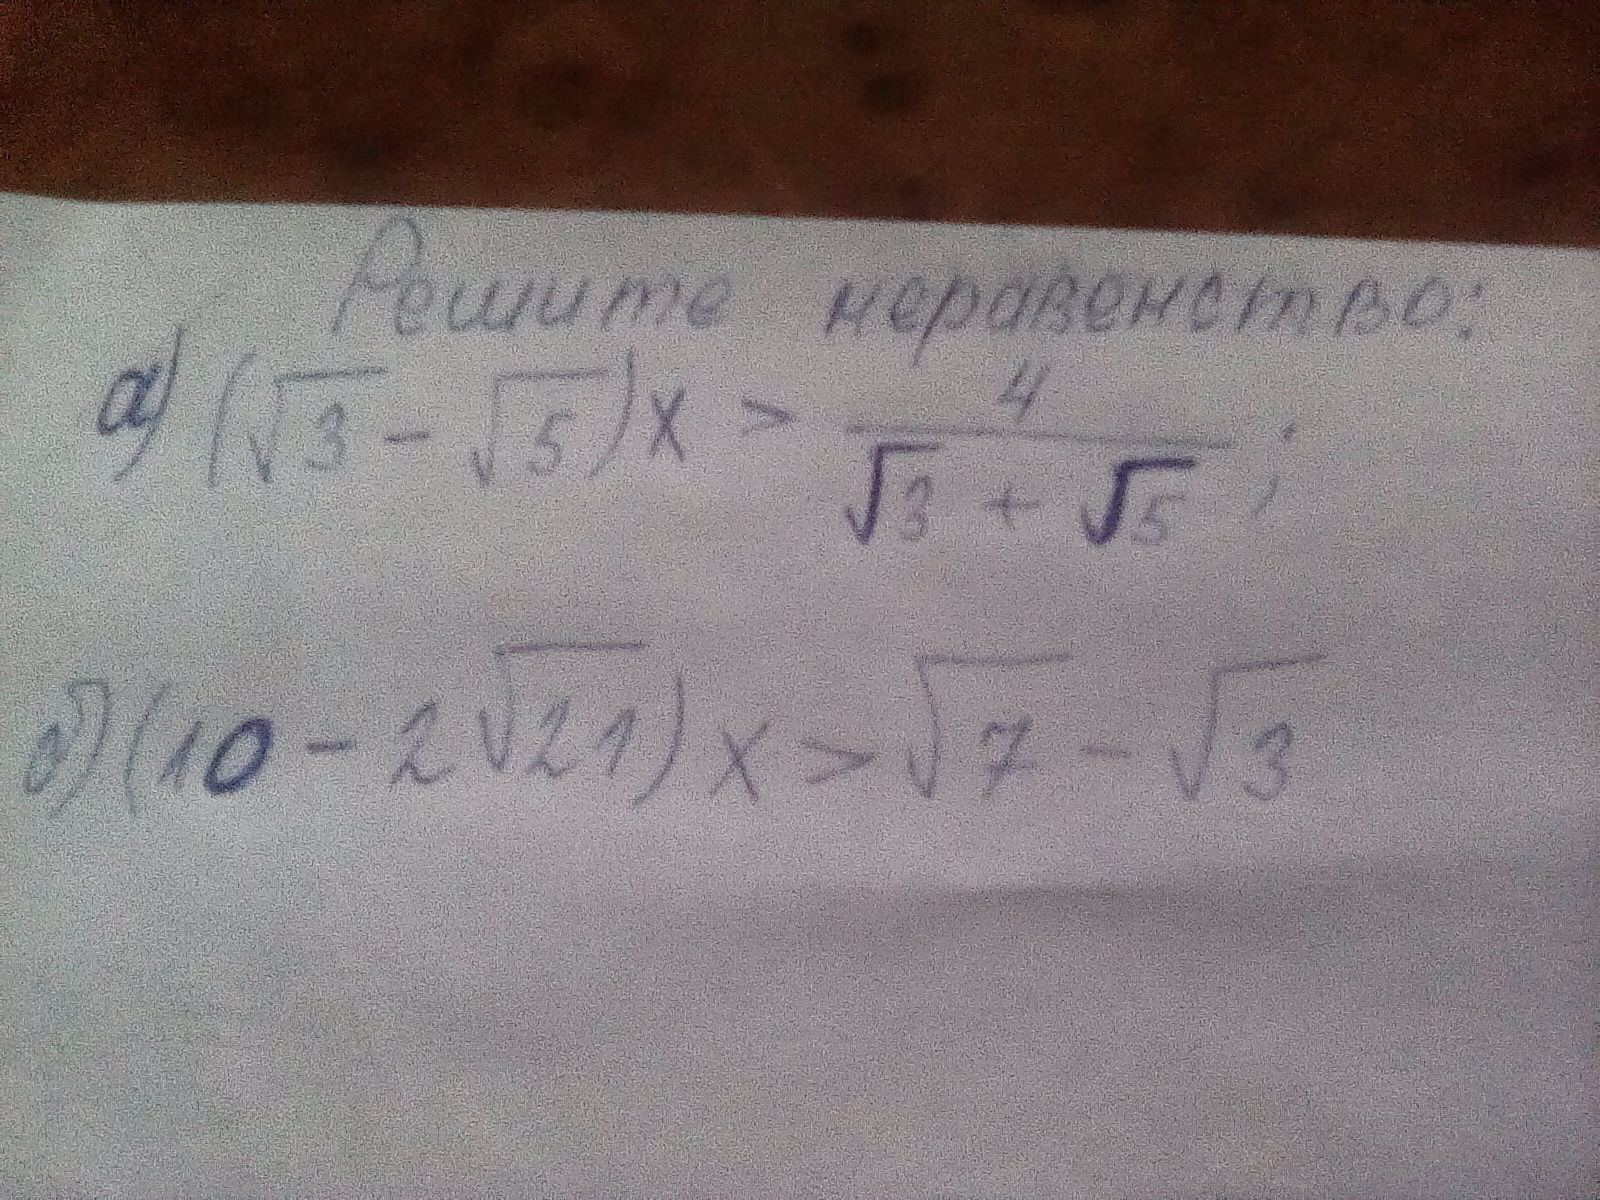 Решите неравенство:
а) (√3 - √5)x > 4/(√3 + √5);
б) (10 - 2√21)x > √7 - √3